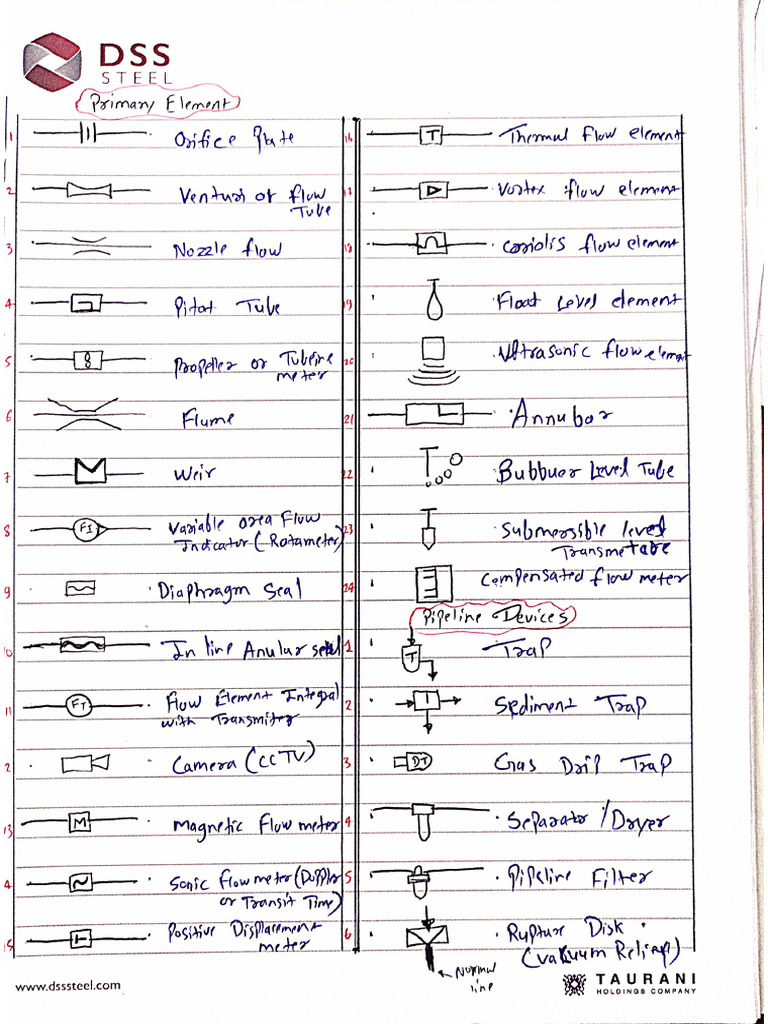 DSS
STEEL
Primary Element
1 Orifice Plate
2 Venturi or flow
Tube
3 Nozzle flow
4 Pitot Tube
5 Propeller or Tubeine
meter
6 Flume
7 Weir
8 FI Variable area Flow
Indicator (Rotameter)
9 Diaphragm Seal
10 In line Anular seal
11 FT Flow Element Integral
with Transmiter
2 Camera (CCTV)
13 M Magnetic Flow meter
4 Sonic flow meter (Doppler
or Transit Time)
15 Positive Displacement
meter
16 T Thermal flow element
17 Vortex flow element
18 Coriolis flow element
19 Float Level element
20 Ultrasonic flow element
21 Annubar
22 Bubbuer Level Tube
23 Submersible level
24 Compensated flow meter
Pipeline Devices
1 T Trap
2 Sediment Trap
3 DT Gas Drip Trap
4 Separator / Dryer
5 Pipeline Filter
6 Rupture Disk
(Vakuum Relief)
Normal
line
www.dsssteel.com
TAURANI
HOLDINGS COMPANY